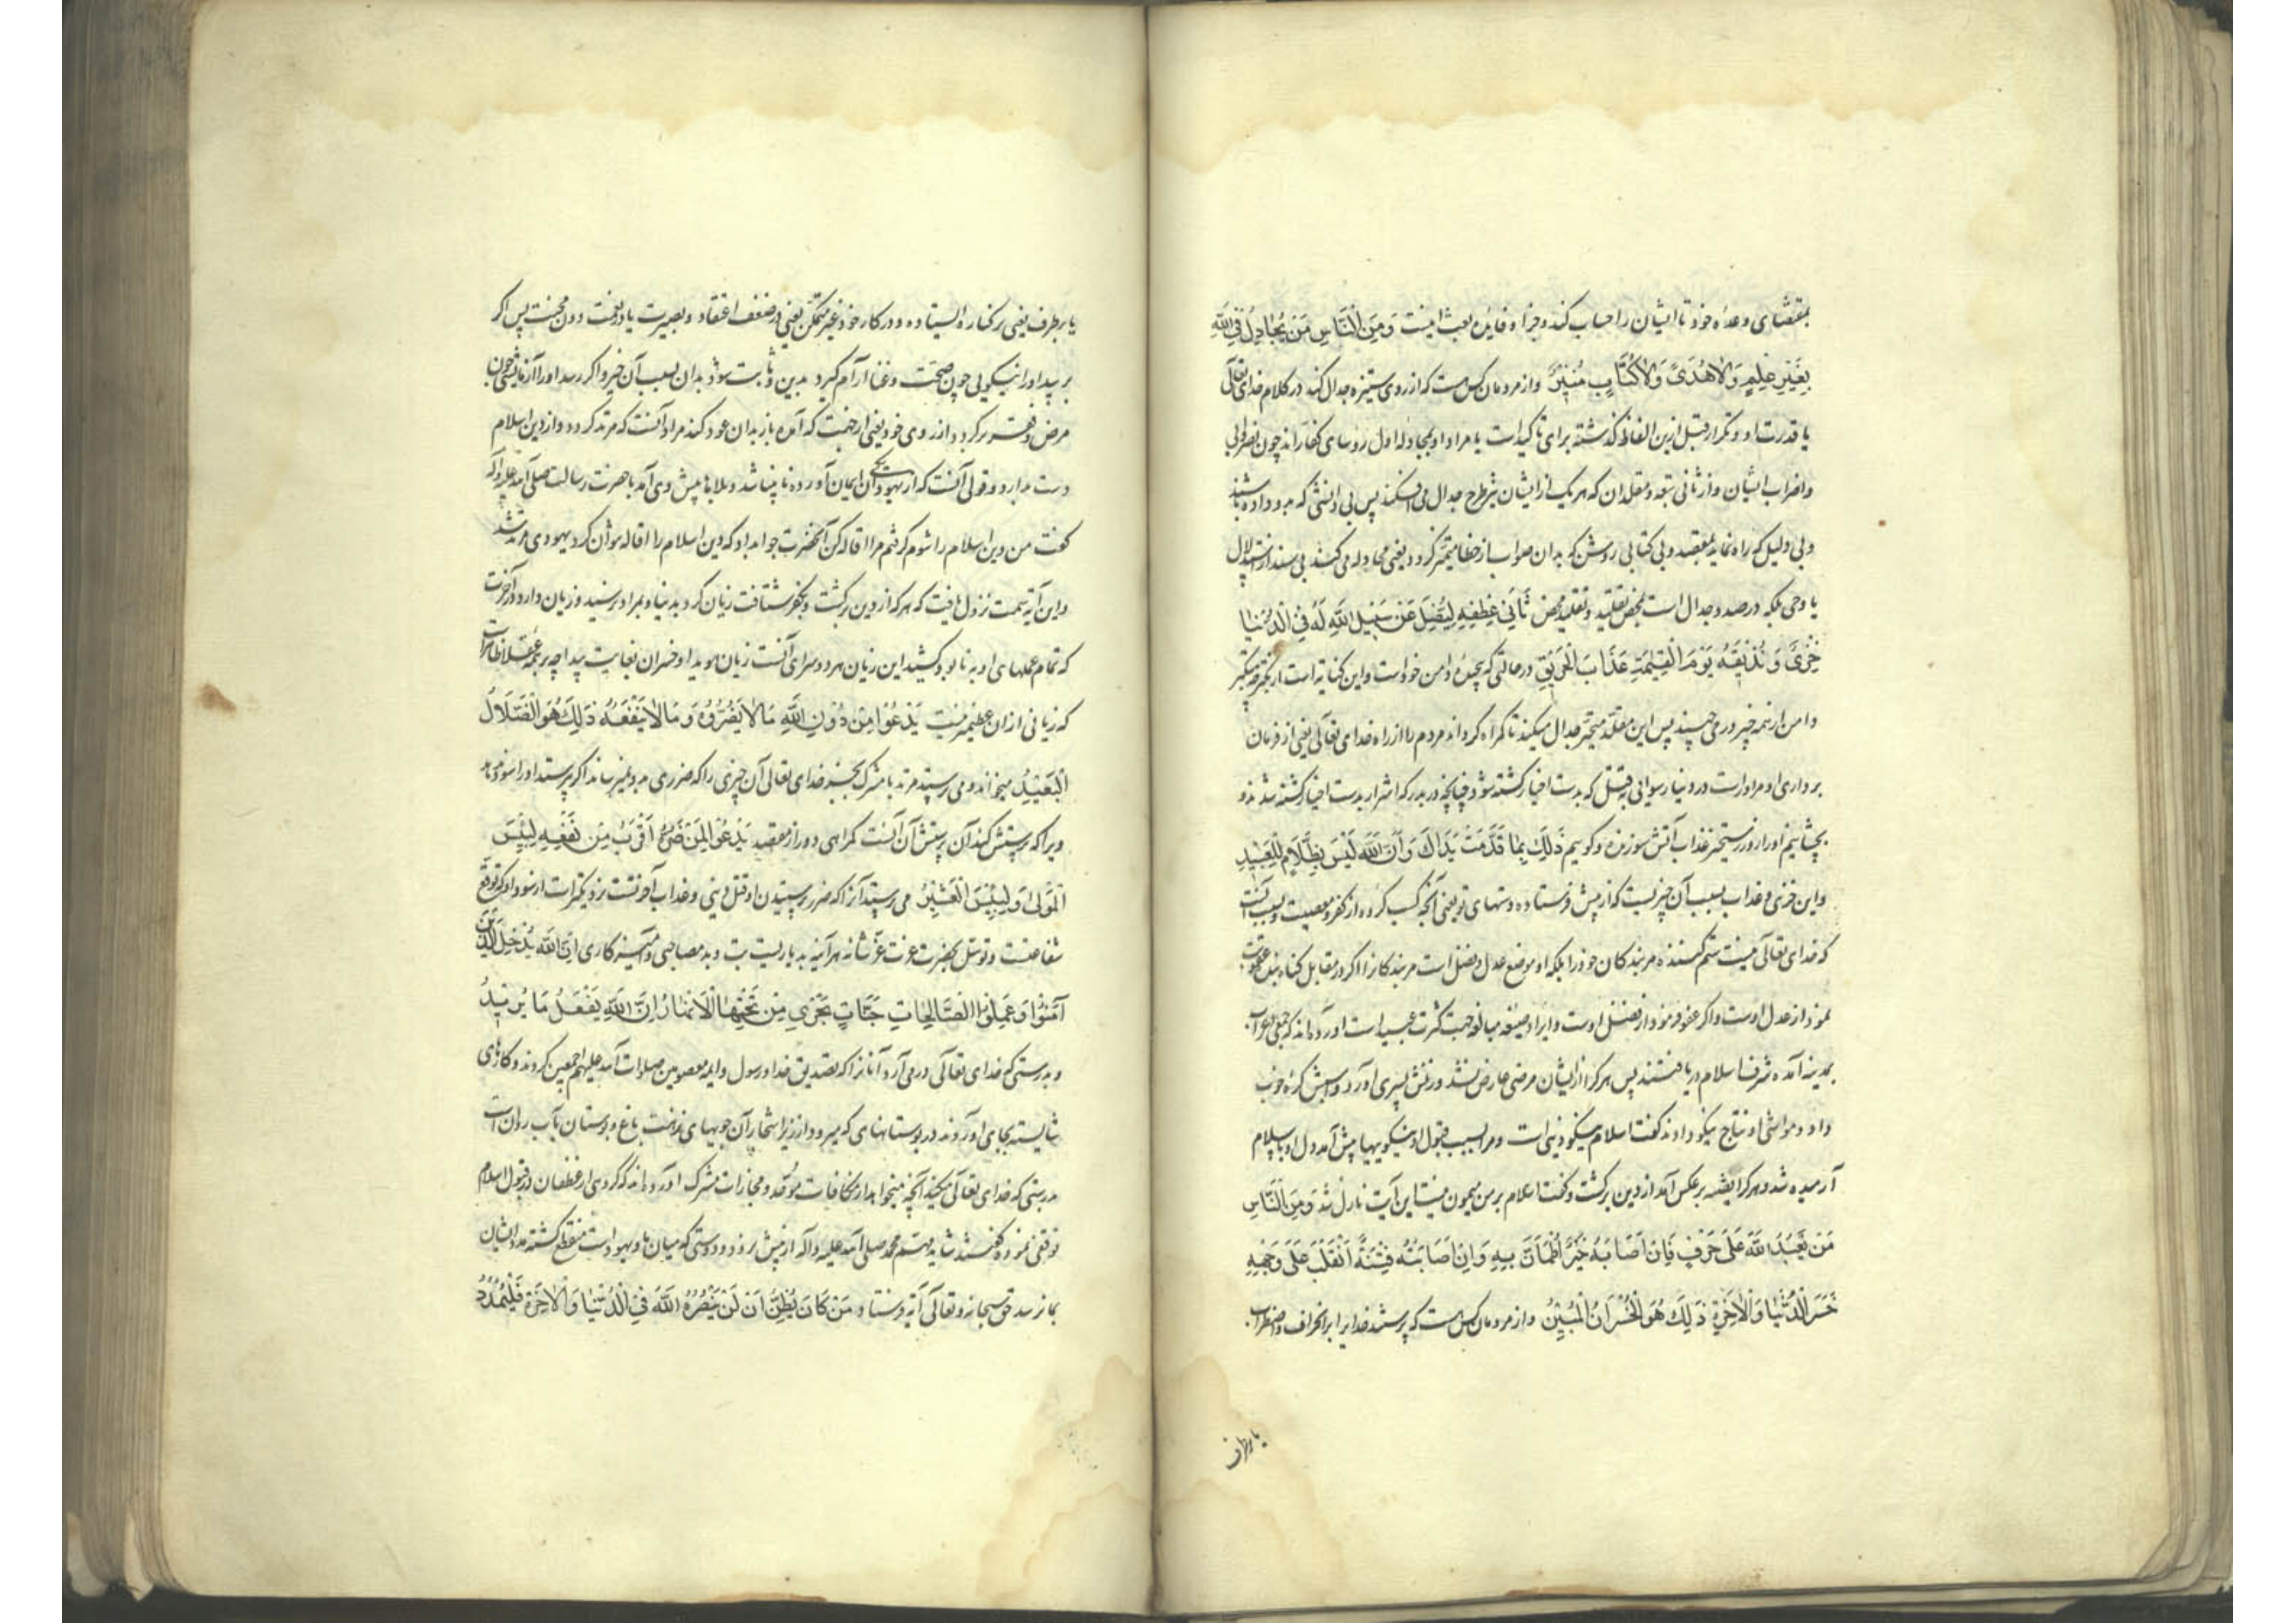 بمقتضای وعده خود تا ایشان را حساب کند و جزا و فایده بعث اینست وَمِنَ النَّاسِ مَن يُجَادِلُ فِي اللَّهِ
بِغَيْرِ عِلْمٍ وَلَا هُدًى وَلَا كِتَابٍ مُنِيرٍ و از مردمان کس هست که از روی ستیزه جدال کند در کلام خدای تعالی
یا قدرت او و تکرار قبل ازین الفاظ گذشته برای تاکید است یا مراد او بمجادله اول روسای کفار اند چون نضر
و اضراب ایشان و از ثانی تبعه و مقلدان که هر یک از ایشان نیز طرح جدال می افکنند پس بی دانشی که بدو داده باشند
و بی دلیل که راه نماید بمقصد و بی کتابی روشن که بدان صواب از خطا متمیز گردد یعنی مجادله می کنند بی سند از استدلال
یا وحی بلکه در صدد جدال است بمحض تقلید و تقلید محض ثَانِيَ عِطْفِهِ لِيُضِلَّ عَن سَبِيلِ اللَّهِ لَهُ فِي الدُّنْيَا
خِزْيٌ وَنُذِيقُهُ يَوْمَ الْقِيمَةِ عَذَابَ الْحَرِيقِ در حالتی که پیچیده دامن خود است و این کنایه است از تکبر چه متکبر
دامن از همه چیز در می چیند پس این مقلد متجبر جدال میکند تا گمراه گرداند مردم را از راه خدای تعالی یعنی از فرمان
برداری او مر او راست در دنیا رسوائی بقتل که بدست اخیار کشته شود چنانچه در بدر که اشرار بدست اخیار کشته شدند و
بچشانیم او را روز رستخیز عذاب آتش سوزنده و گوییم ذَلِكَ بِمَا قَدَّمَتْ يَدَاكَ وَأَنَّ اللَّهَ لَيْسَ بِظَلَّامٍ لِلْعَبِيدِ
و این خزی و عذاب بسبب آن چیزیست که از پیش فرستاده دستهای تو یعنی آنچه کسب کرده از کفر و معصیت و بسبب آنست
که خدای تعالی نیست ستم کننده مر بندگان خود را بلکه او موضع عدل و فضل است مر بندکانرا اگر در مقابل گناه بنده عقوبت
نمود از عدل اوست و اگر عفو فرمود از فضل اوست و ایراد صیغه مبالغه جهت کثرت عبید است آورده اند که جمعی اعراب
بمدینه آمده شرف اسلام دریافتند پس هر کرا از ایشان مرضی عارض نشد و زنش پسری آورد و اسبش کره خوب
داد و مواشی او نتاج نیکو دادند گفت اسلام نیکو دینی است و مرا بسبب قبول او نیکویها پیش آمد دل او باسلام
آرمیده شد و هر کرا قضیه بر عکس آمد از دین برگشت و گفت اسلام بر من میمون نیست این آیت نازل شد وَمِنَ النَّاسِ
مَن يَعْبُدُ اللَّهَ عَلَى حَرْفٍ فَإِنْ أَصَابَهُ خَيْرٌ اطْمَأَنَّ بِهِ وَإِنْ أَصَابَتْهُ فِتْنَةٌ انْقَلَبَ عَلَى وَجْهِهِ
خَسِرَ الدُّنْيَا وَالْآخِرَةِ ذَلِكَ هُوَ الْخُسْرَانُ الْمُبِينُ و از مردمان کس هست که پرستد خدایرا بر انحراف و اضطراب
یا بر طرف
یا بر طرف یعنی بر کناره ایستاده و در کار خود غیر متمکن یعنی در ضعف اعتقاد و بصیرت یا در نعمت دون محنت پس اگر
برسد او را نیکویی چون صحت و غنا آرام گیرد بدین و ثابت شود بدان بسبب آن خیر و اگر رسد او را آزمایشی چون
مرض و فقر برگردد از روی خود یعنی از جهت که آمده باز بدان عود کند مراد آنست که مرتد گردد و از دین اسلام
دست بدارد و قولی آنست که از یهود یکی آن ایمان آورده نابینا شد و بلاها پیش وی آمد با حضرت رسالت صلی الله علیه وآله
گفت من دین اسلام را شوم گرفتم مرا اقاله کن آنحضرت جواب داد که دین اسلام را اقاله نتوان کرد یهودی مرتد شد
و این آیه سمت نزول یافت که هر که از دین برگشت و بکفر شتافت زیان کرد بدنیا و بمراد نرسید و زیان دارد در آخرت
که تمام عملهای او به نابود کشید این زیان هر دو سرای آنست زیان هویدا و خسران بغایت پیدا چه بر همه عقلا ظاهر است
که زیانی ازان عظیمتر نیست يَدْعُوا مِن دُونِ اللَّهِ مَا لَا يَضُرُّهُ وَمَا لَا يَنْفَعُهُ ذَلِكَ هُوَ الضَّلَالُ
الْبَعِيدُ میخواند و می پرستد مرتد یا مشرک بجز خدای تعالی آن چیزی را که ضرری بدو نمیرساند اگر نپرستد او را و سود ندهد
ویرا که پرستش کند آن پرستش آن آنست گمراهی دور از مقصد يَدْعُوا لَمَنْ ضَرُّهُ أَقْرَبُ مِن نَفْعِهِ لَبِئْسَ
الْمَوْلَى وَلَبِئْسَ الْعَشِيرُ می پرستد آنرا که ضرر پرستیدن او قتل دنیی و عذاب آخرتست نزدیکتر است از سود او که توقع
شفاعتست و توسل بحضرت عزت عز شانه هر آینه بد یاریست بت و بد مصاحبی و آمیزگاری إِنَّ اللَّهَ يُدْخِلُ الَّذِينَ
آمَنُوا وَعَمِلُوا الصَّالِحَاتِ جَنَّاتٍ تَجْرِي مِن تَحْتِهَا الْأَنْهَارُ إِنَّ اللَّهَ يَفْعَلُ مَا يُرِيدُ
و بدرستی که خدای تعالی در می آرد آنانرا که تصدیق خدا و رسول و ایمه معصومین صلوات الله علیهم اجمعین کردند و کارهای
شایسته بجای آوردند در بوستانهای که میرود از زیر اشجار آن جویهای نزهت باغ و بوستان بآب روان است
بدرستی که خدای تعالی میکند آنچه میخواهد از مکافات موحد و مجازات مشرک آورده اند که گروهی از غطفان در قبول اسلام
توقفی نموده گفتند شاید مهم محمد صلی الله علیه وآله از پیش نرود و دوستی که میان ما و یهود است منقطع گشته مدد ایشان
بما نرسد حق سبحانه و تعالی آیه فرستاد مَن كَانَ يَظُنُّ أَن لَن يَنْصُرَهُ اللَّهُ فِي الدُّنْيَا وَالْآخِرَةِ فَلْيَمْدُدْ